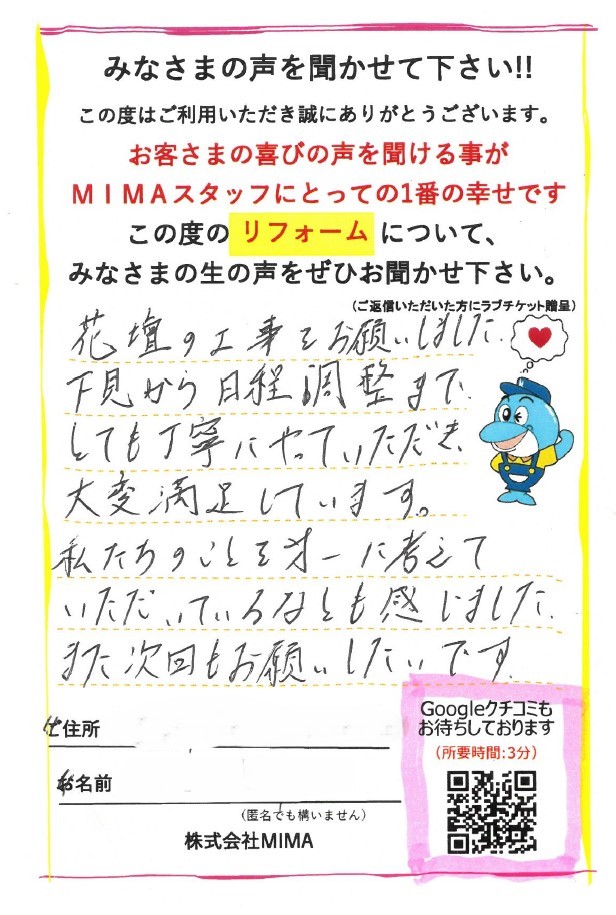 みなさまの声を聞かせて下さい!!
この度はご利用いただき誠にありがとうございます。
お客さまの喜びの声を聞ける事が
MIMAスタッフにとっての1番の幸せです
この度の リフォーム について、
みなさまの生の声をぜひお聞かせ下さい。
(ご返信いただいた方にラブチケット贈呈)
花壇の工事をお願いしました.
下見から日程調整まで.
とても丁寧にやっていただき、
大変満足しています。
私たちのことを才一に考えて
いただいているなとも感じました.
また次回もお願いしたいです.
ご住所
お名前
(匿名でも構いません)
株式会社MIMA
Googleクチコミも
お待ちしております
(所要時間:3分)